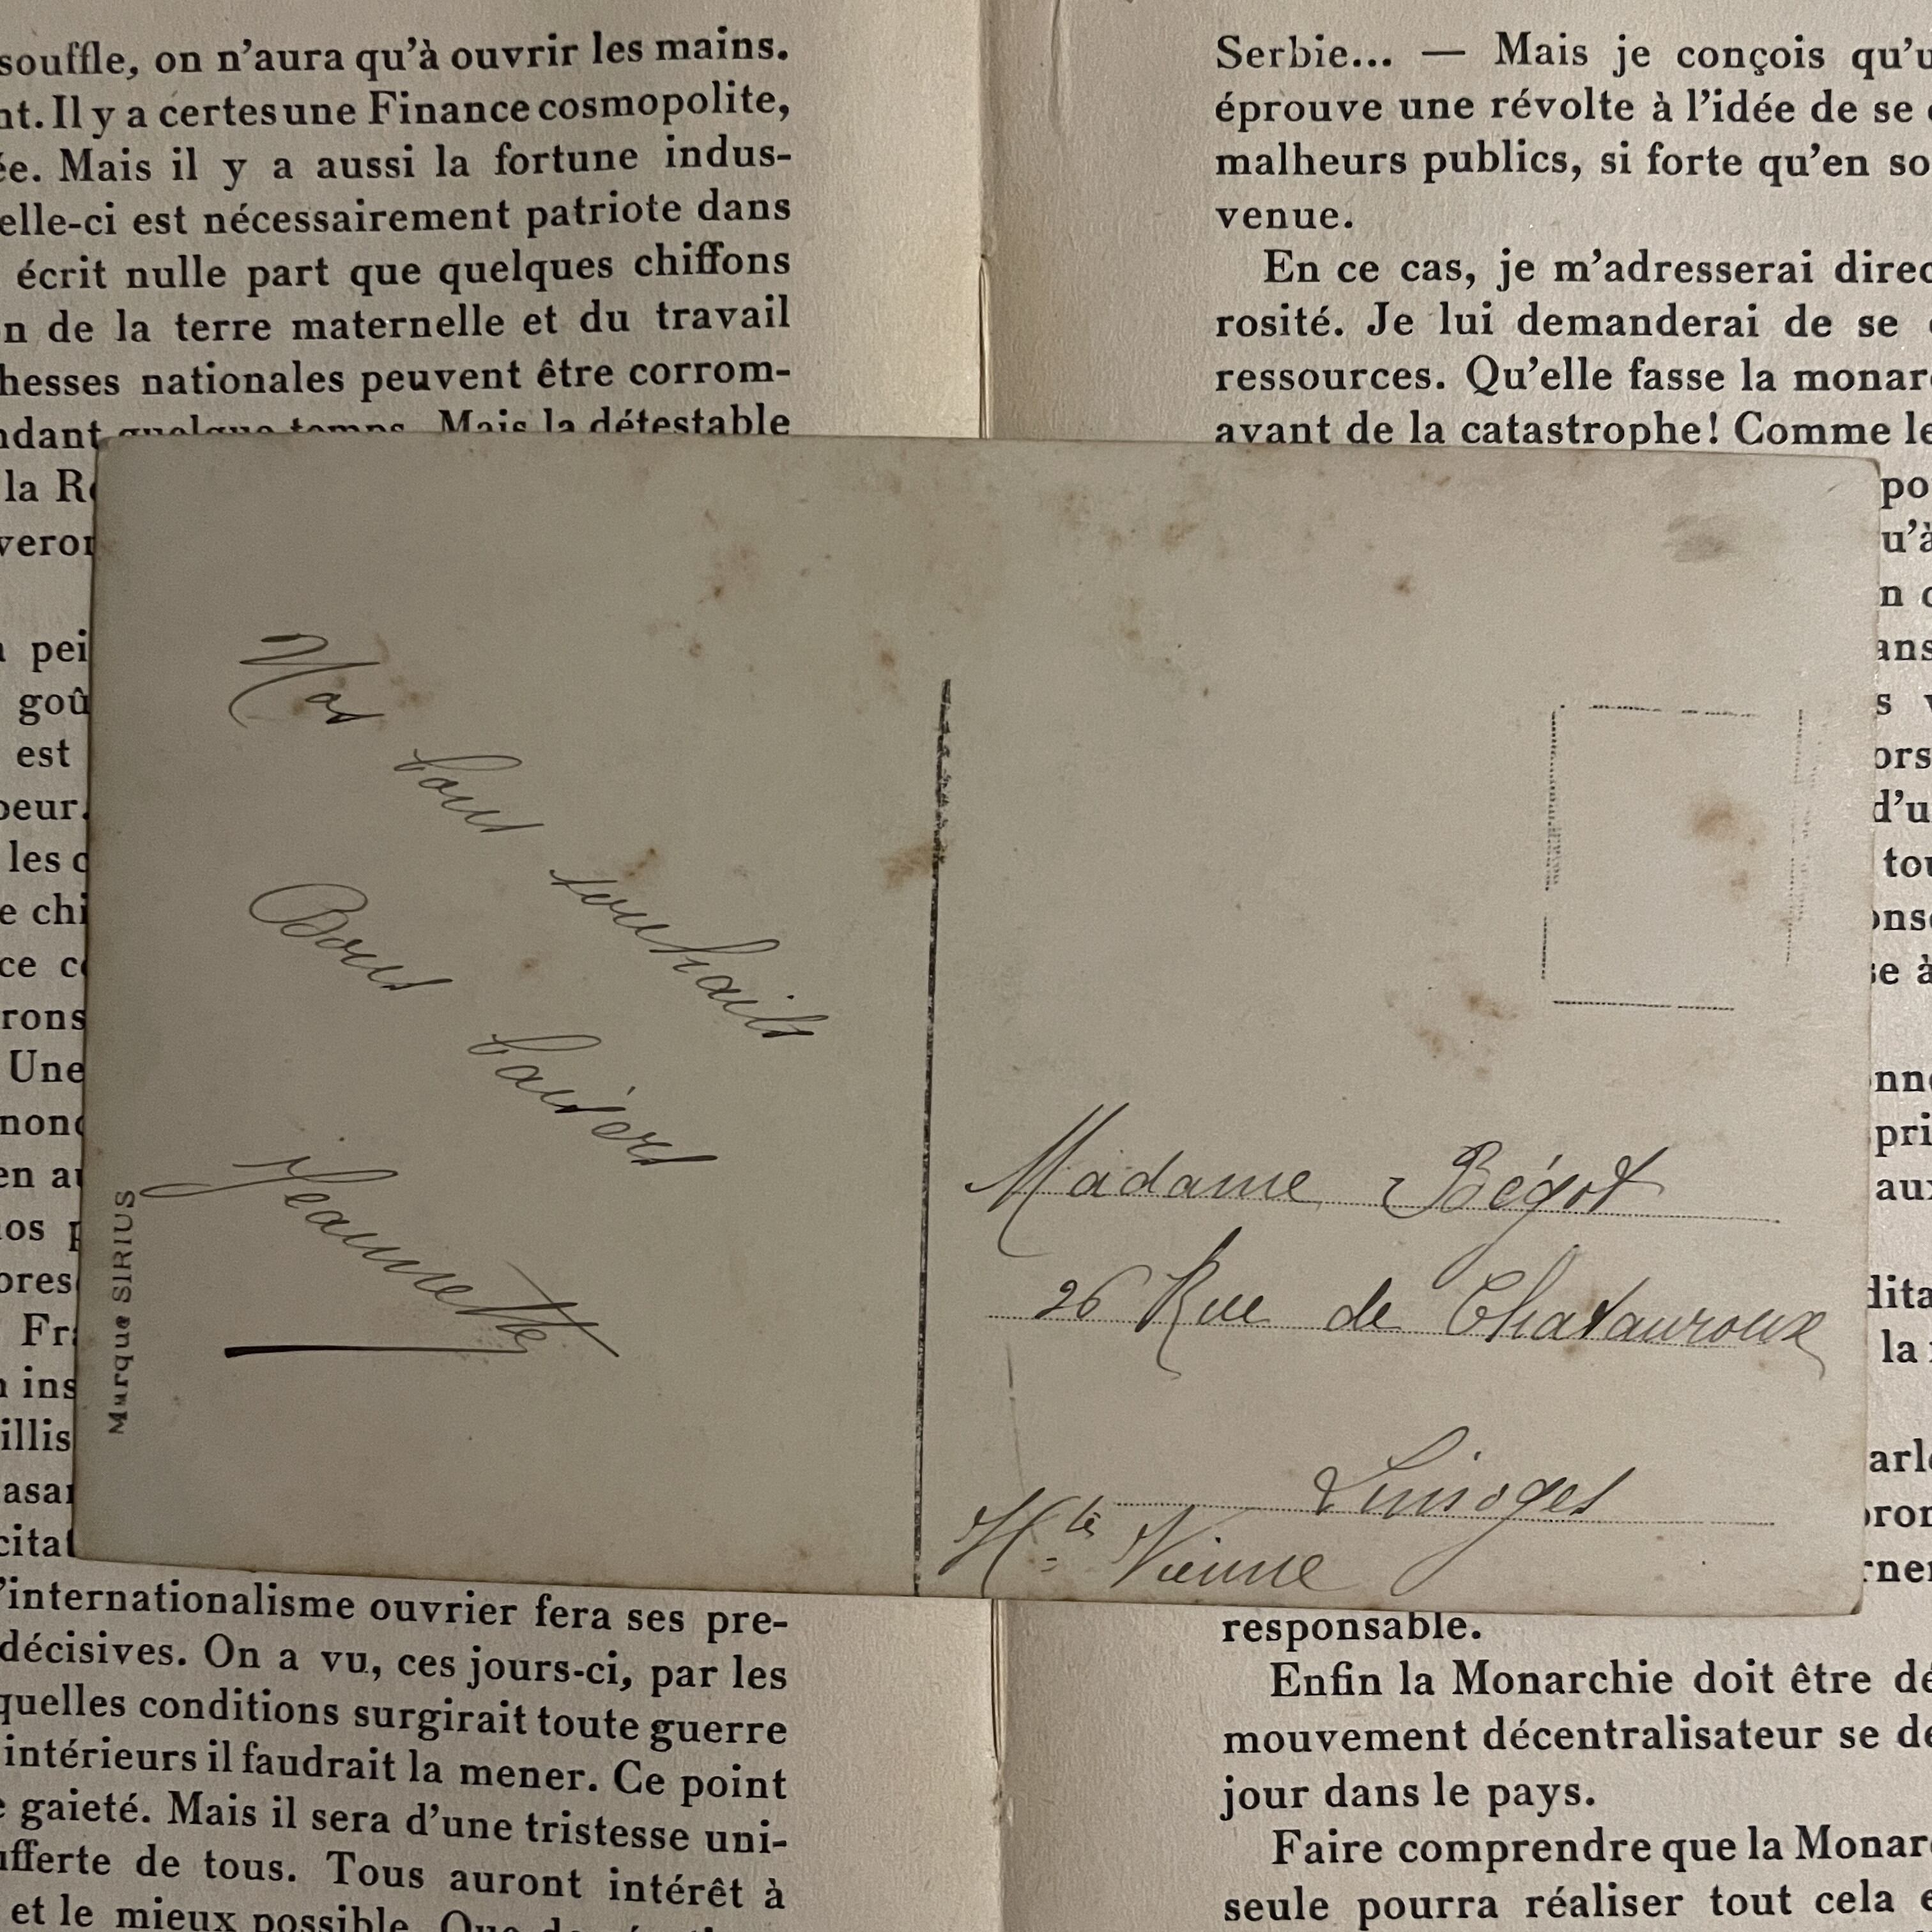 souffle, on n'aura qu'à ouvrir les mains.
nt. Il y a certes une Finance cosmopolite,
ée. Mais il y a aussi la fortune indus-
elle-ci est nécessairement patriote dans
écrit nulle part que quelques chiffons
n de la terre maternelle et du travail
hesses nationales peuvent être corrom-
ndant quelque temps. Mais la détestable
la R
veron
pei
goû
est
peur.
les
e chi
ce c
rons
Une
nonc
en au
nos p
ores
Fra
n ins
illis
asar
citat
'internationalisme ouvrier fera ses pre-
décisives. On a vu, ces jours-ci, par les
quelles conditions surgirait toute guerre
intérieurs il faudrait la mener. Ce point
e gaieté. Mais il sera d'une tristesse uni-
ufferte de tous. Tous auront intérêt à
et le mieux possible. Que de
Serbie... — Mais je conçois qu'u
éprouve une révolte à l'idée de se
malheurs publics, si forte qu'en so
venue.
En ce cas, je m'adresserai direc
rosité. Je lui demanderai de se
ressources. Qu'elle fasse la monar
avant de la catastrophe! Comme le
po
u'à
n
ans
s
ors
d'u
tou
onse
se à
nne
pri
aux
dita
la
arle
pron
rner
responsable.
Enfin la Monarchie doit être dé
mouvement décentralisateur se de
jour dans le pays.
Faire comprendre que la Monar
seule pourra réaliser tout cela e
Nos bons souhaits
Bons baisers
Jeannette
Marque SIRIUS
Madame Bégot
26 Rue de Chatauroux
Limoges
Hte Vienne